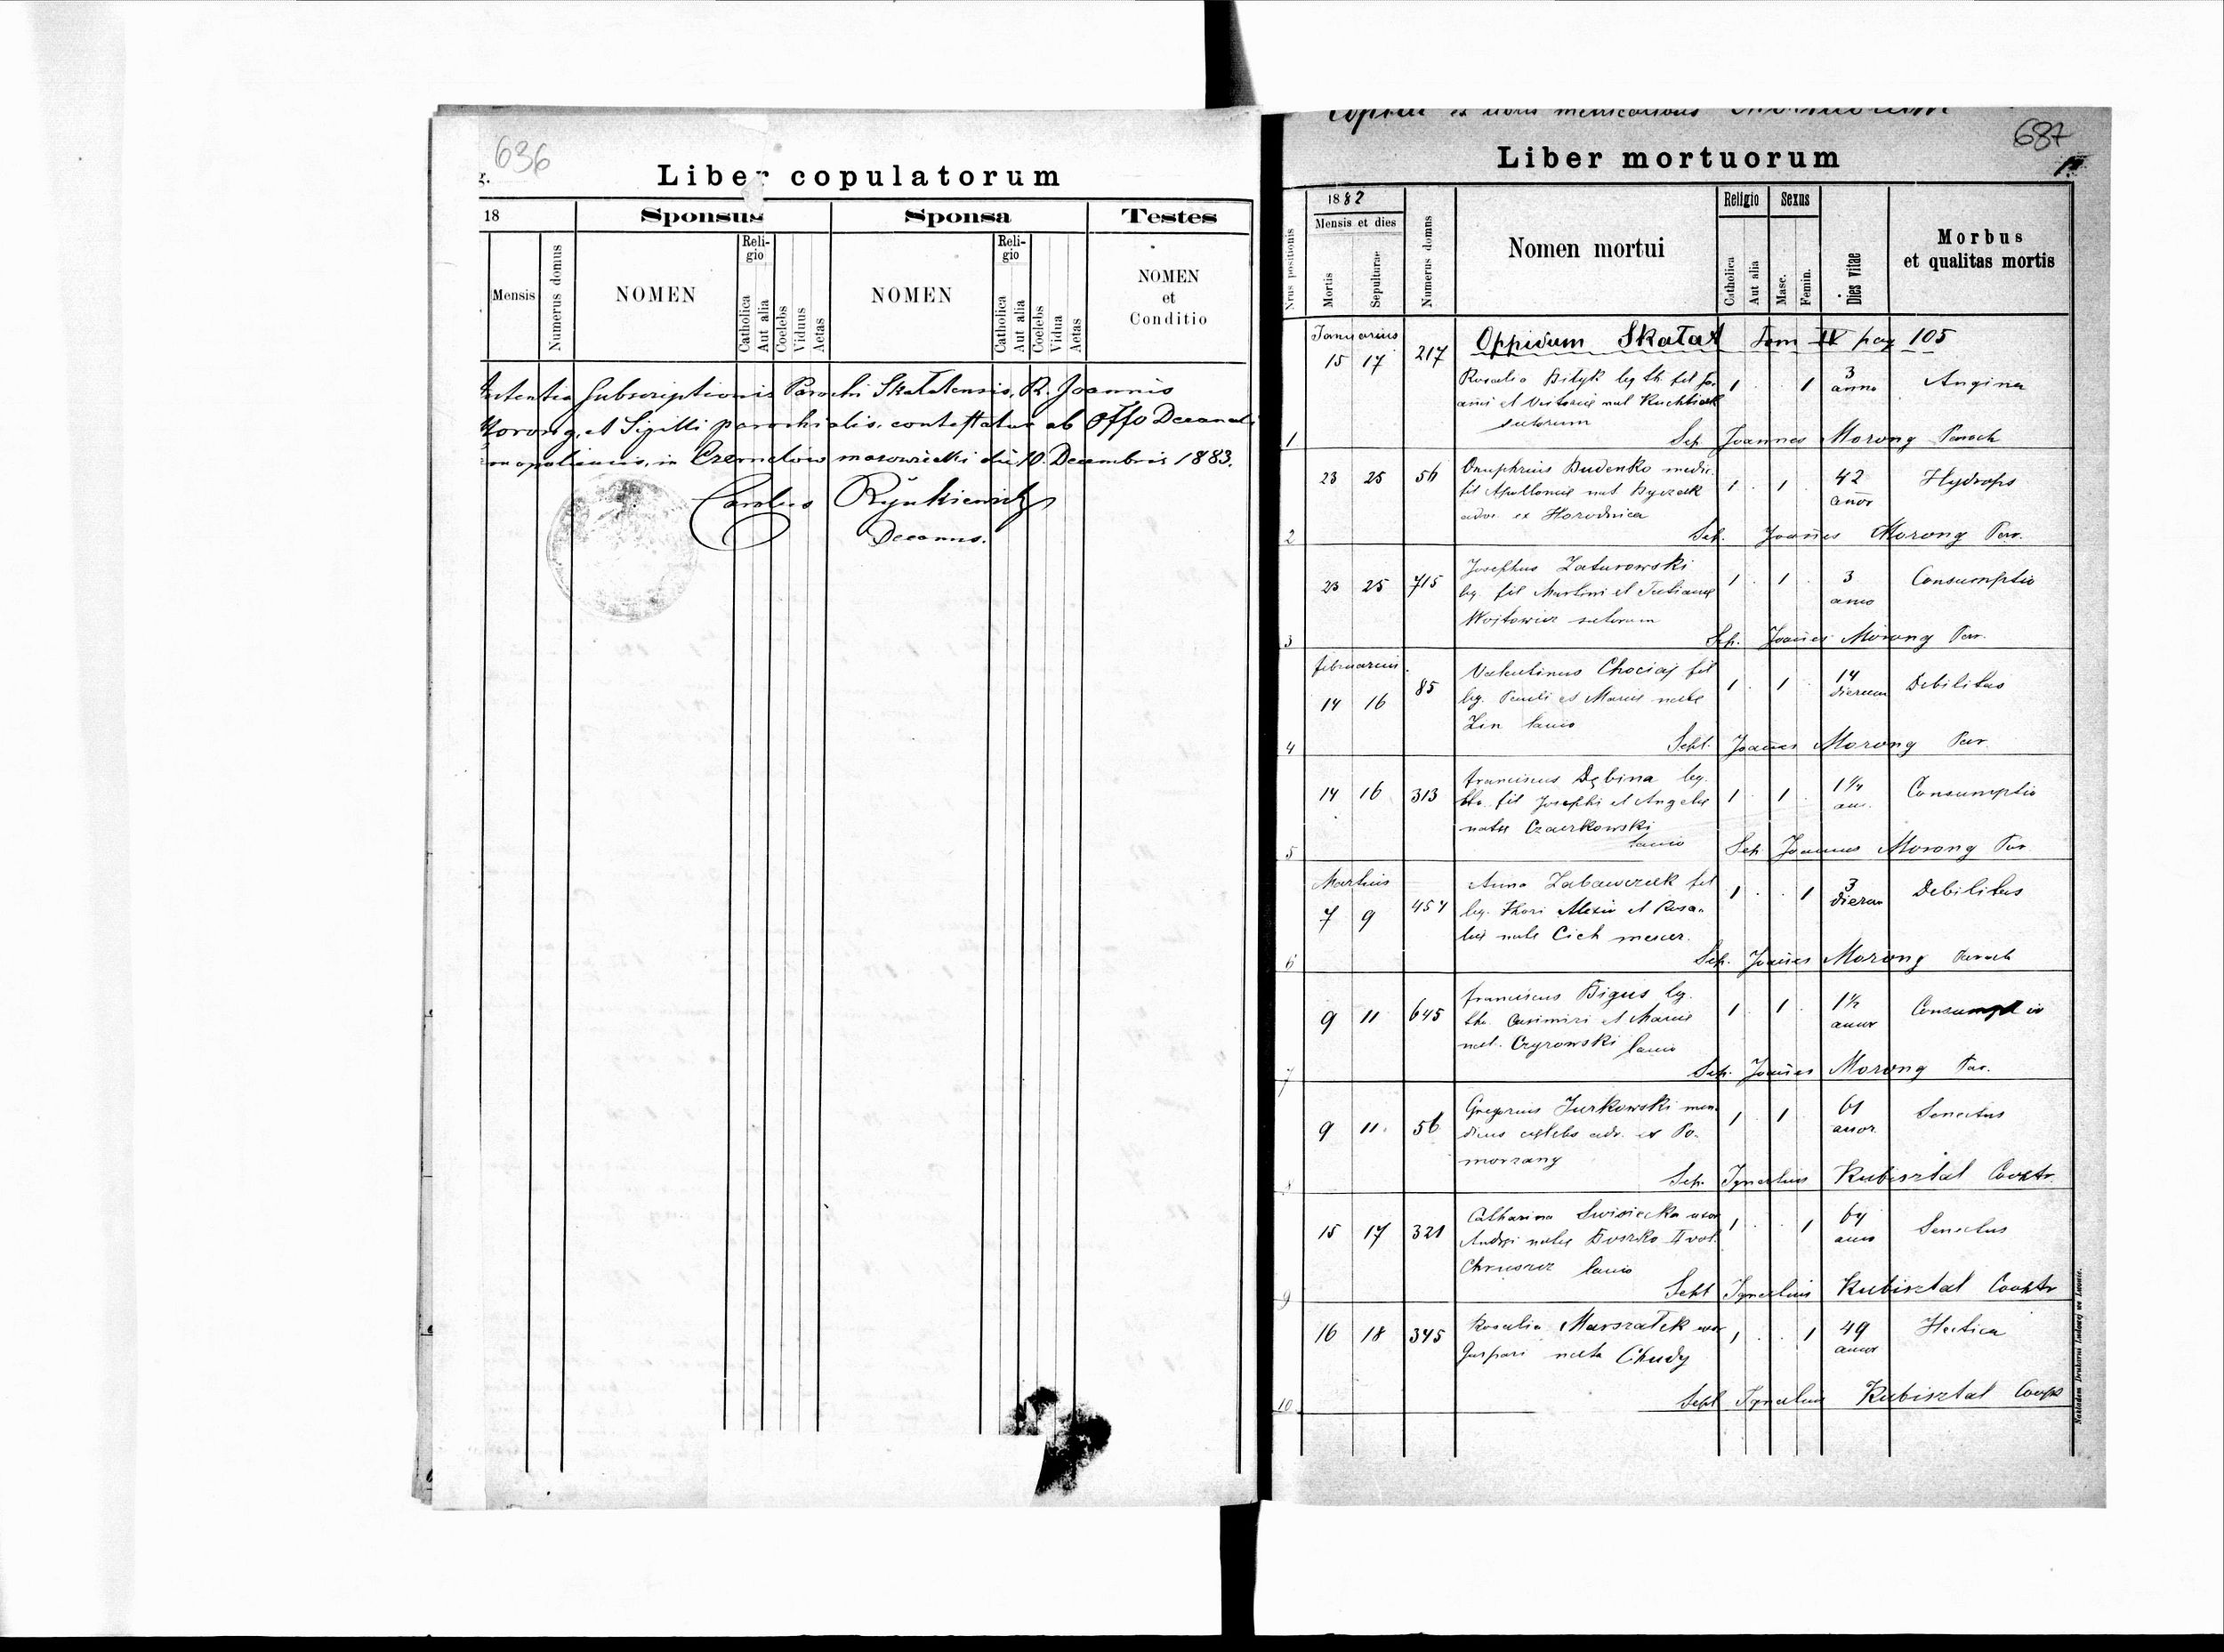 636
g.
Liber copulatorum
18
Sponsus
Sponsa
Testes
Mensis
Numerus domus
NOMEN
Reli-
gio
Catholica
Aut alia
Coelebs
Viduus
Aetas
NOMEN
Reli-
gio
Catholica
Aut alia
Coelebs
Vidua
Aetas
NOMEN
et
Conditio
Subscriptionis Parochi Skalatensis, R. Joannis
Morong, et Sigilli parochialis, contestatur ab Offo Decanali
in Czernelów mazowiecki die 10. Decembris 1883.
Carolus Rynkiewicz
Decanus.
Copiae ex libris metricalibus Mortuorum
637
Liber mortuorum
1882
Mensis et dies
Nrus positionis
Mortis
Sepulturae
Numerus domus
Nomen mortui
Religio
Catholica
Aut alia
Sexus
Masc.
Femin.
Dies vitae
Morbus
et qualitas mortis
Januarius
Oppidum Skałat Tom IV pag 105
15 17 217
Rosalia Bilyk leg. th. fil Jo- 1 1 3 Angina
anni et nat Kuchtiak anno
sutorum
1 Sep. Joannes Morong Paroch
23 25 56 Onuphrius Dudenko medic. 1 1 42 Hydrops
fil Apolloniae nat Byczek annor
adv. ex Horodnica
2 Sep. Joannes Morong Par.
23 25 715 Josephus Zaturowski 1 1 3 Consumptio
leg. fil Martini et Tatianae anno
Wojtowicz sutorum
3 Sep. Joannes Morong Par.
februarius
14 16 85 Valentinus Chociaj fil 1 1 14 Debilitas
leg. Pauli et Mariae natae dierum
Zin lanio
4 Sept. Joannes Morong Par
14 16 313 franciscus Dębina leg. 1 1 1¼ Consumptio
tho. fil Josephi et Angelae ann.
natae Czaerkowski
lanio
5 Sep Joannes Morong Par
Martius
7 9 457 Anna Zabawczuk fil 1 1 3 Debilitas
leg. thori Alexii et Rosa- dierum
liae natae Cich mercr.
6 Sep. Joannes Morong Paroch
9 11 645 franciscus Bigus leg. 1 1 1½ Consumptio
tho. Casimiri et Mariae annor
nat. Czyrowski lanio
7 Sep. Joannes Morong Par.
9 11 56 Gregorius Jurkowski men- 1 1 61 Senectus
dicus caelebs adv. ex Po- annor.
morzany
8 Sep. Ignatius Kubisztal Cooptr.
15 17 321 Catharina Swisiecka uxor 1 1 64 Senectus
Andrei natae Boszko II vot. anno
Chruszcz lanio
9 Sept Ignatius Kubisztal Cooptr
16 18 345 Rosalia Marszałek uxor 1 1 49 Hectica
Gaspari nata Chudy annor
10 Sept Ignatius Kubisztal Coop
Nakładem Drukarni Ludowej we Lwowie.